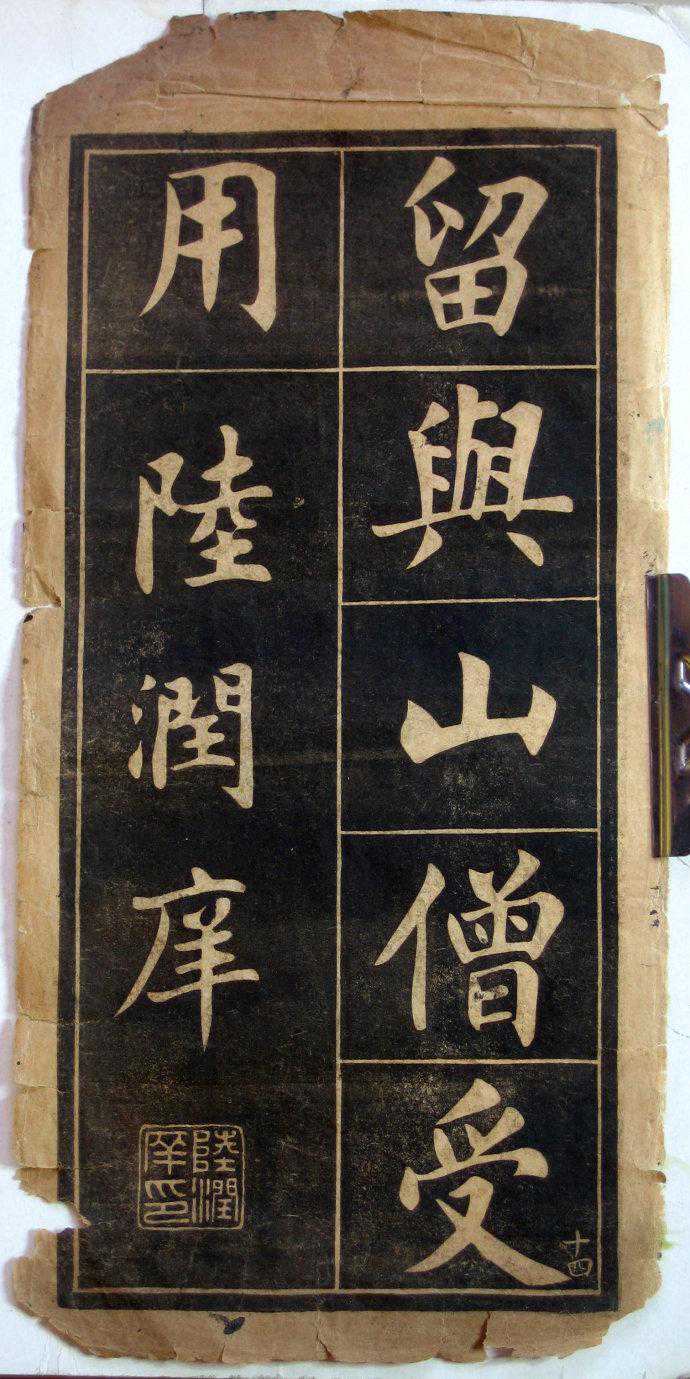 留與山僧受
十四
用陸潤庠
陸潤庠印